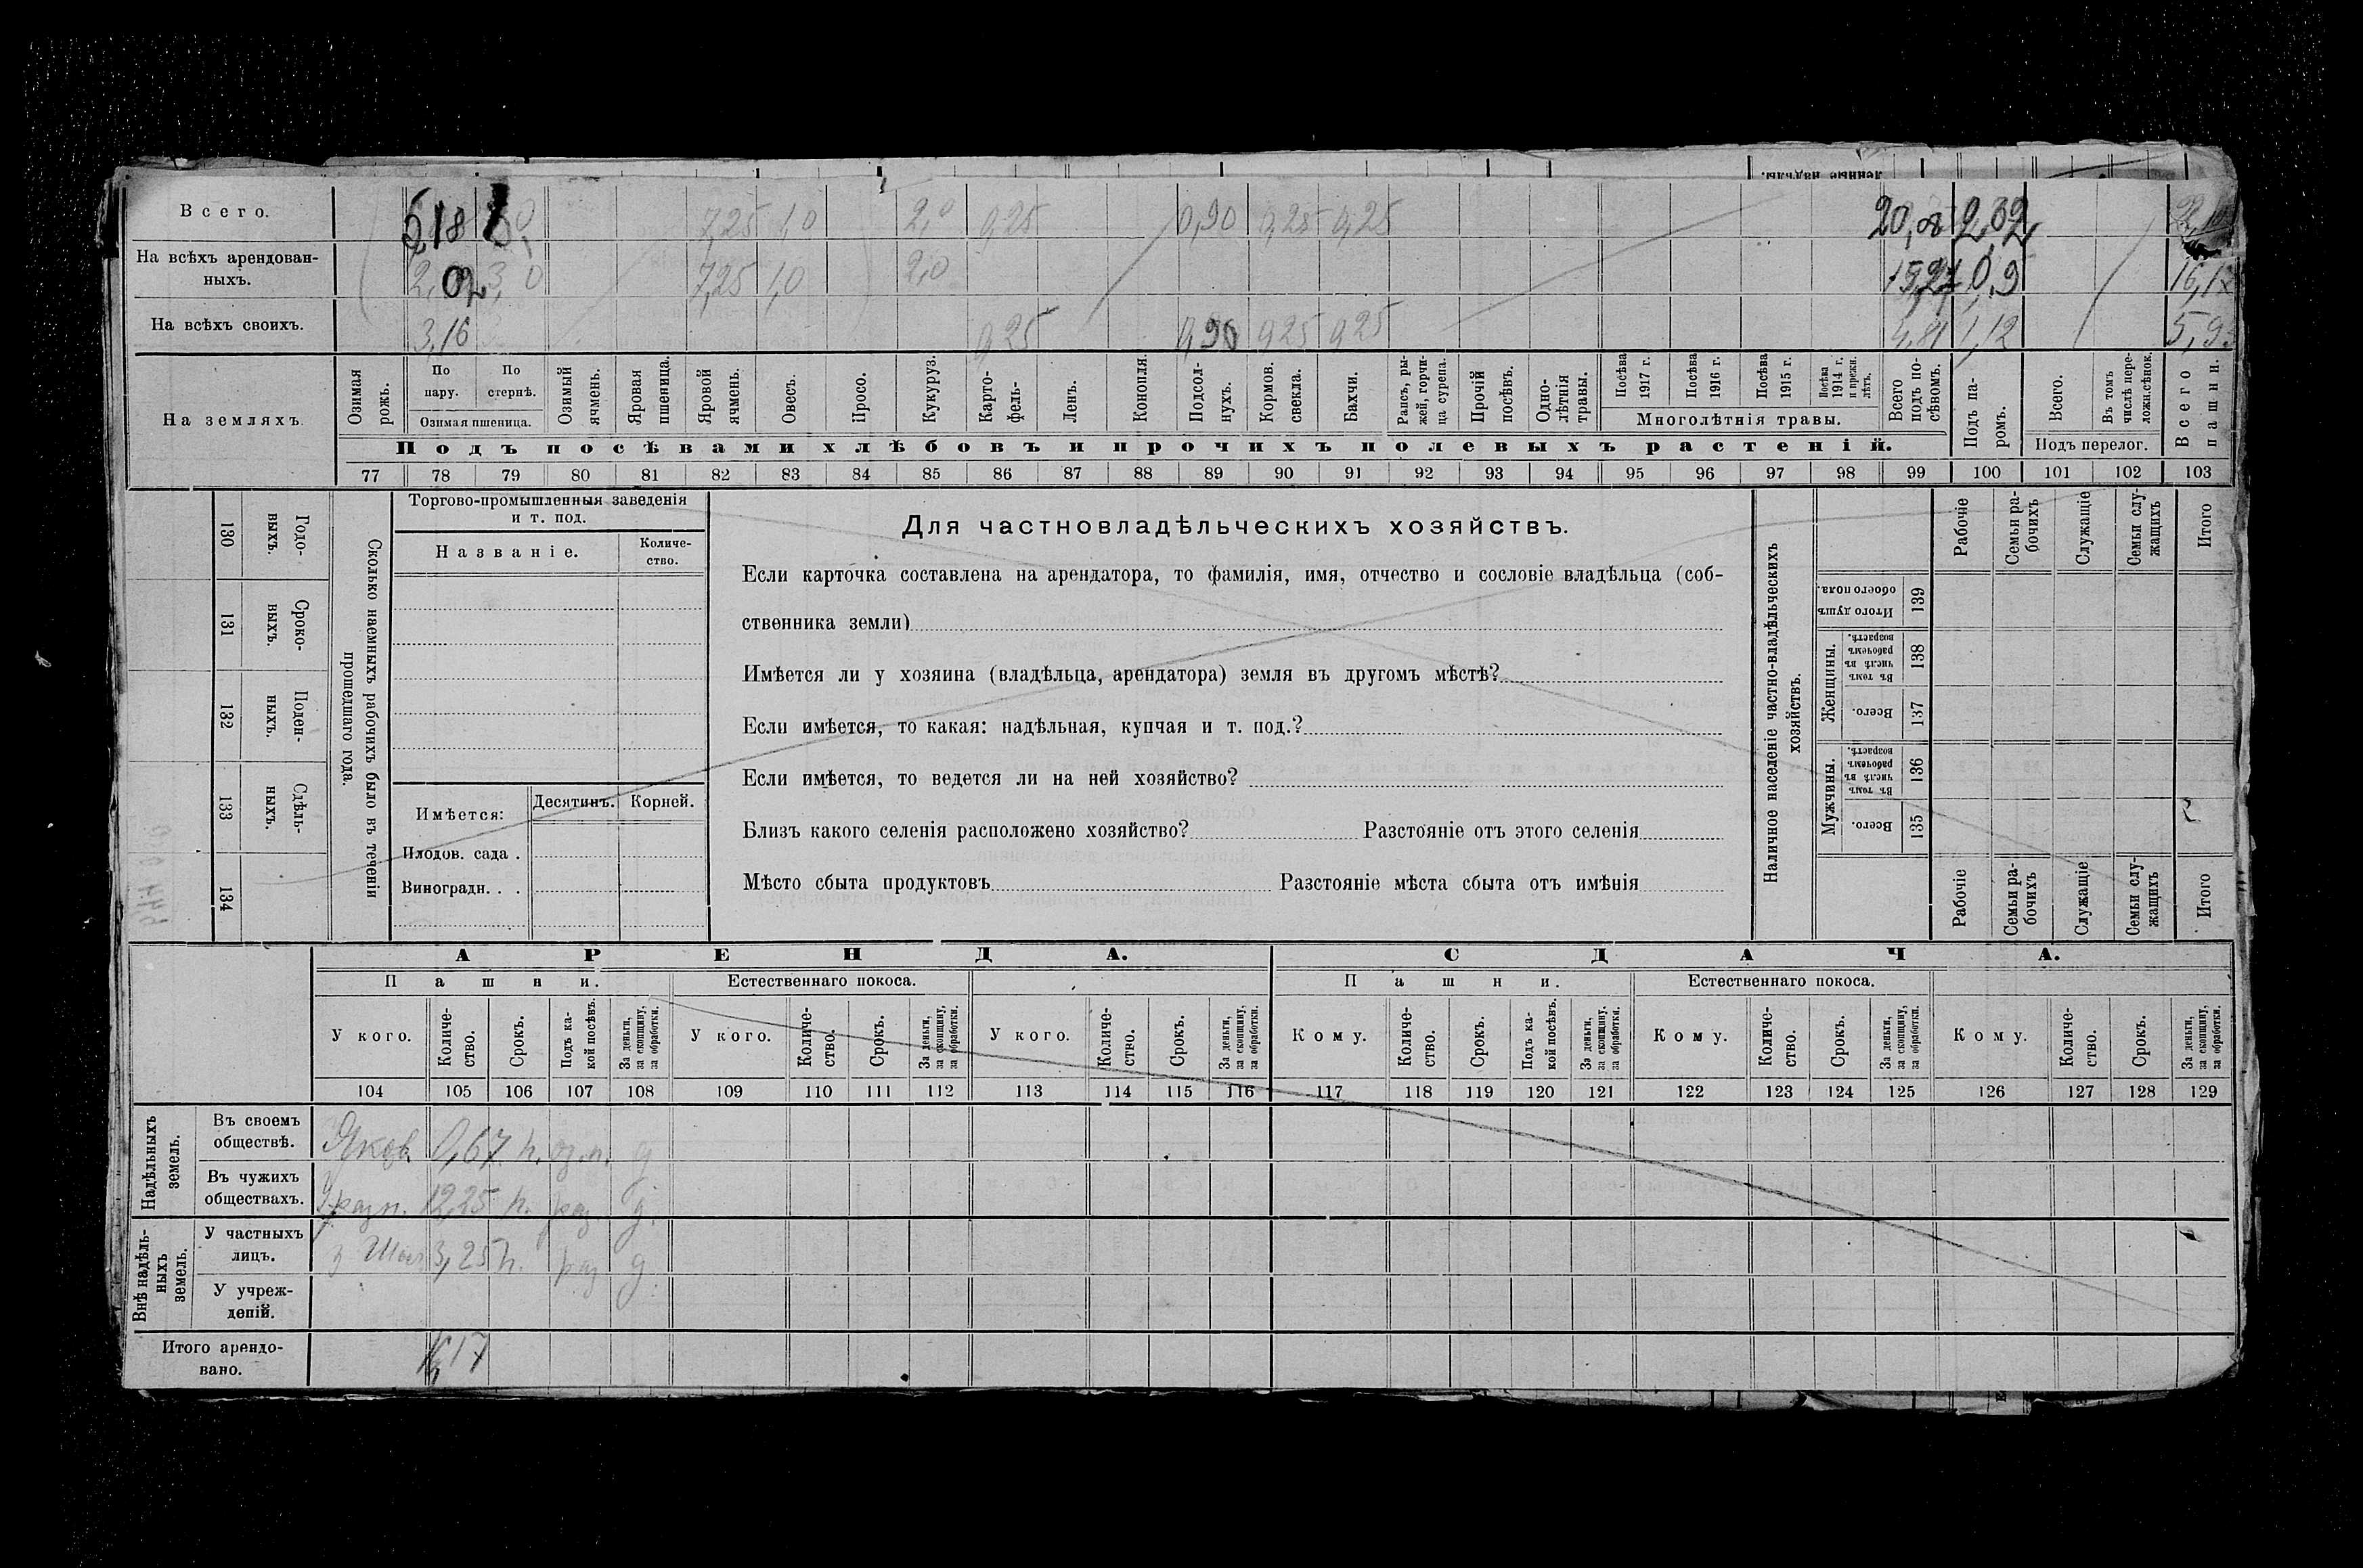 Всего. 6,18 7,25 1,0 2,0 0,25 0,90 0,25 0,25 20,08 2,02
На всѣхъ арендован-
ныхъ. 3,0 7,25 1,0 2,0 15,27 0,9 16,17
На всѣхъ своихъ. 3,16 0,25 0,90 0,25 0,25 4,81 1,12 5,93
На земляхъ.
Озимая рожь.
По пару.
По стернѣ.
Озимая пшеница.
Озимый ячмень.
Яровая пшеница.
Яровой ячмень.
Овесъ.
Просо.
Кукуруз.
Карто-
фель.
Ленъ.
Конопля.
Подсол-
нухъ.
Кормов. свекла.
Бахчи.
Рапсъ, ры-
жей, горчи-
ца сурепа.
Прочій посѣвъ.
Одно-
лѣтнія травы.
Посѣва 1917 г.
Посѣва 1916 г.
Посѣва 1915 г.
Посѣва 1914 г. и прежн. лѣтъ.
Многолѣтнія травы.
Всего подъ по-
сѣвомъ.
Подъ па-
ромъ.
Всего.
Въ томъ числѣ пере-
ложн.сѣнок.
Подъ перелог.
Всего пашни.
Подъ посѣвами хлѣбовъ и прочихъ полевыхъ растеній.
77 78 79 80 81 82 83 84 85 86 87 88 89 90 91 92 93 94 95 96 97 98 99 100 101 102 103
Сколько наемныхъ рабочихъ было въ теченіи
прошедшаго года.
Годо-
выхъ.
130
Сроко-
выхъ.
131
Поден-
ныхъ.
132
Сдѣль-
ныхъ.
133
134
Торгово-промышленныя заведенія
и т. под.
Названіе.
Количе-
ство.
Имѣется:
Десятинъ.
Корней.
Плодов. сада .
Виноградн. . .
Для частновладѣльческихъ хозяйствъ.
Если карточка составлена на арендатора, то фамилія, имя, отчество и сословіе владѣльца (соб-
ственника земли)
Имѣется ли у хозяина (владѣльца, арендатора) земля въ другомъ мѣстѣ?
Если имѣется, то какая: надѣльная, купчая и т. под.?
Если имѣется, то ведется ли на ней хозяйство?
Близъ какого селенія расположено хозяйство? Разстояніе отъ этого селенія
Мѣсто сбыта продуктовъ Разстояніе мѣста сбыта отъ имѣнія
Наличное населеніе частно-владѣльческихъ
хозяйствъ.
Рабочіе
Семьи ра-
бочихъ
Служащіе
Семьи слу-
жащихъ
Итого
Итого душъ обоего пола.
139
Женщины.
Въ томъ числѣ въ рабочемъ возрастѣ.
138
Всего.
137
Мужчины.
Въ томъ числѣ въ рабочемъ возрастѣ.
136
Всего.
135
Рабочіе
Семьи ра-
бочихъ
Служащіе
Семьи слу-
жащихъ
Итого
АРЕНДА. СДАЧА.
Пашни. Естественнаго покоса. Пашни. Естественнаго покоса.
У кого.
Количе-
ство.
Срокъ.
Подъ ка-
кой посѣвъ.
За деньги, за скопщину, за обработки.
У кого.
Количе-
ство.
Срокъ.
За деньги, за скопщину, за обработки.
У кого.
Количе-
ство.
Срокъ.
За деньги, за скопщину, за обработки.
Кому.
Количе-
ство.
Срокъ.
Подъ ка-
кой посѣвъ.
За деньги, за скопщину, за обработки.
Кому.
Количе-
ство.
Срокъ.
За деньги, за скопщину, за обработки.
Кому.
Количе-
ство.
Срокъ.
За деньги, за скопщину, за обработки.
104 105 106 107 108 109 110 111 112 113 114 115 116 117 118 119 120 121 122 123 124 125 126 127 128 129
Надѣльныхъ
земель.
Въ своемъ
обществѣ. 0,67 оз.п. д
Въ чужихъ
обществахъ. 12,25 раз. д.
Внѣ надѣль-
ныхъ
земель.
У частныхъ
лицъ. 3,25 раз д
У учреж-
деній.
Итого арендо-
вано. 16,17